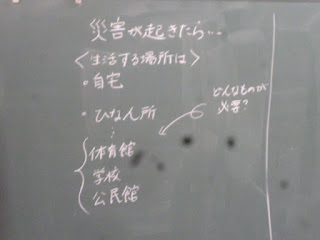 災害が起きたら…
〈生活する場所は〉
・自宅
・ひなん所
体育館
学校
公民館
どんなものが
必要?